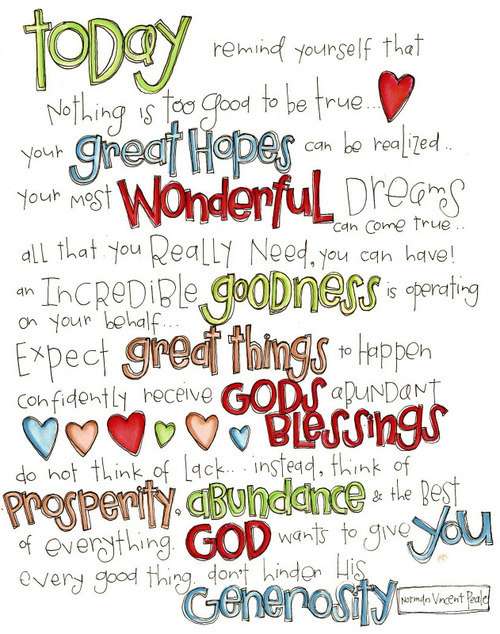 today remind yourself that
Nothing is too good to be true...
your great Hopes can be realized..
your most Wonderful Dreams
can come true..
all that you Really Need, you can have!
an Incredible goodness is operating
on your behalf...
Expect great things to Happen
confidently receive GODS aBUNDANT
Blessings
do not think of Lack... instead, think of
Prosperity, aBundance & the Best
of everything. GOD wants to give You
every good thing. don't hinder His
Generosity Norman Vincent Peale